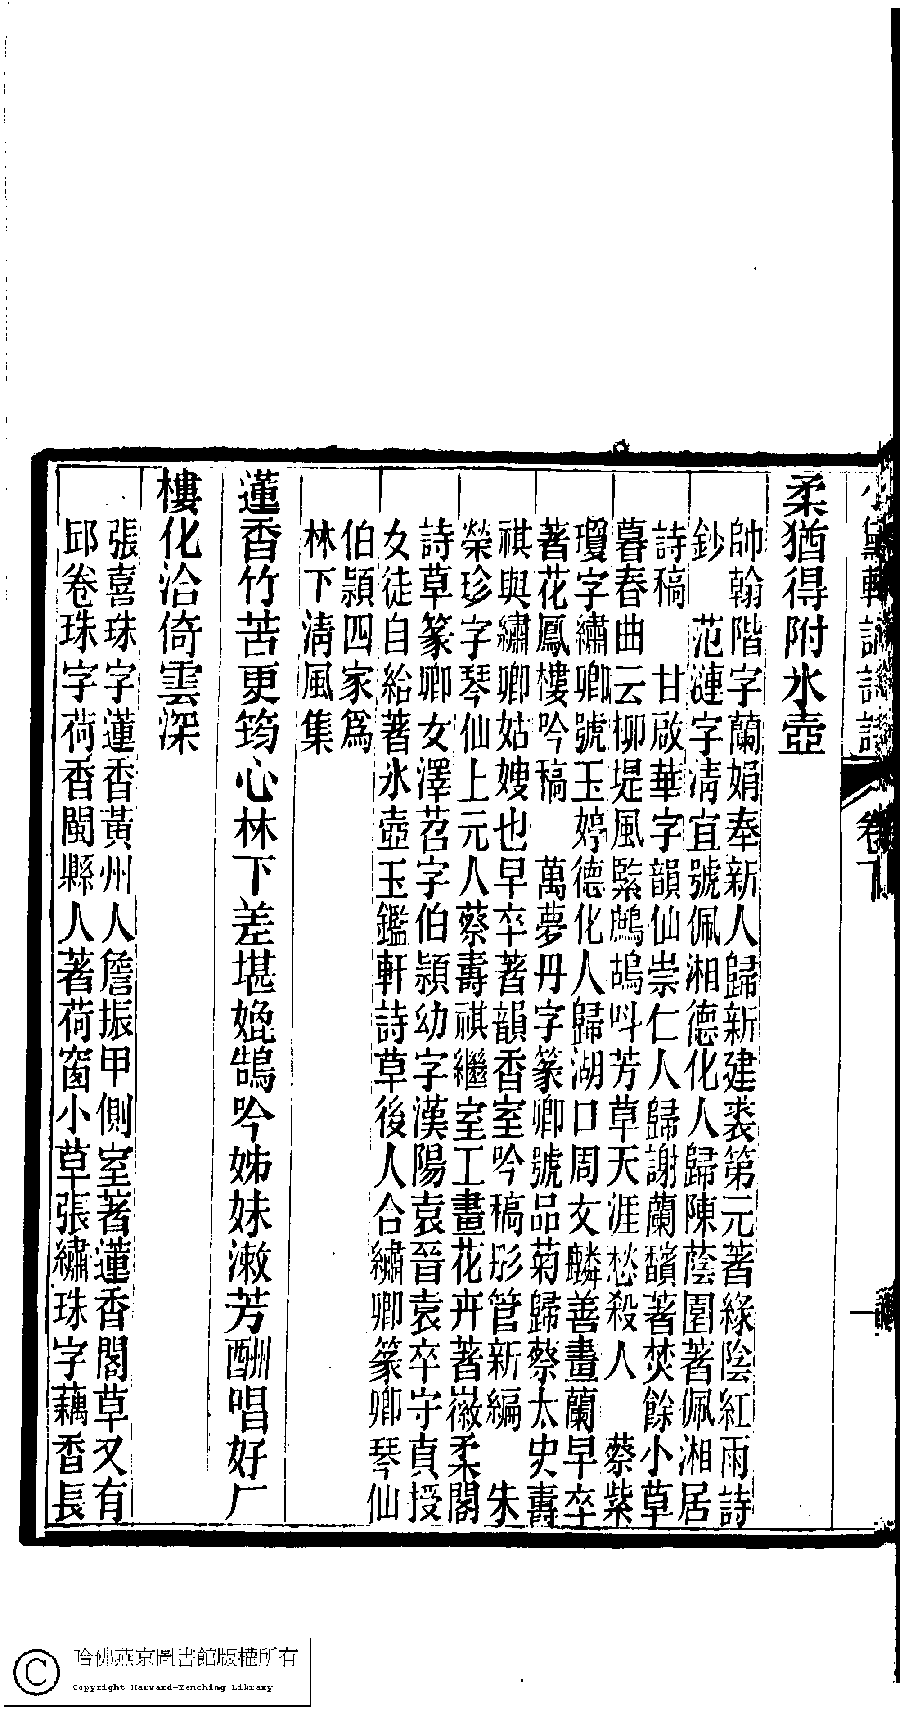 小黛軒論詩詩 卷下
柔猶得附氷壺
帥翰階字蘭娟奉新人歸新建裘第元著緣陰紅雨詩
鈔 范漣字淸宜號佩湘德化人歸陳蔭圃著佩湘居
詩稿 甘啟華字韻仙崇仁人歸謝蘭馥著焚餘小草
暮春曲云柳堤風緊鷓鴣呌芳草天涯愁殺人 蔡紫
瓊字繡卿號玉婷德化人歸湖口周文麟善畫蘭早卒
著花鳳樓吟稿 萬夢丹字篆卿號品菊歸蔡太史壽
祺與繡卿姑嫂也早卒著韻香室吟稿彤管新編 朱
榮珍字琴仙上元人蔡壽祺繼室工畫花卉著徽柔閣
詩草篆卿女澤苕字伯潁幼字漢陽袁晉袁卒守貞授
女徒自給著氷壺玉鑑軒詩草後人合繡卿篆卿琴仙
伯潁四家爲
林下淸風集
蓮香竹苦更筠心林下差堪媲鵠吟姊妹漱芳酬唱好厂
樓化洽倚雲深
張喜珠字蓮香黃州人詹振甲側室著蓮香閣草又有
邱卷珠字荷香閩縣人著荷窗小草張繡珠字藕香長
哈佛燕京圖書館版權所有
Copyright Harvard-Yenching Library